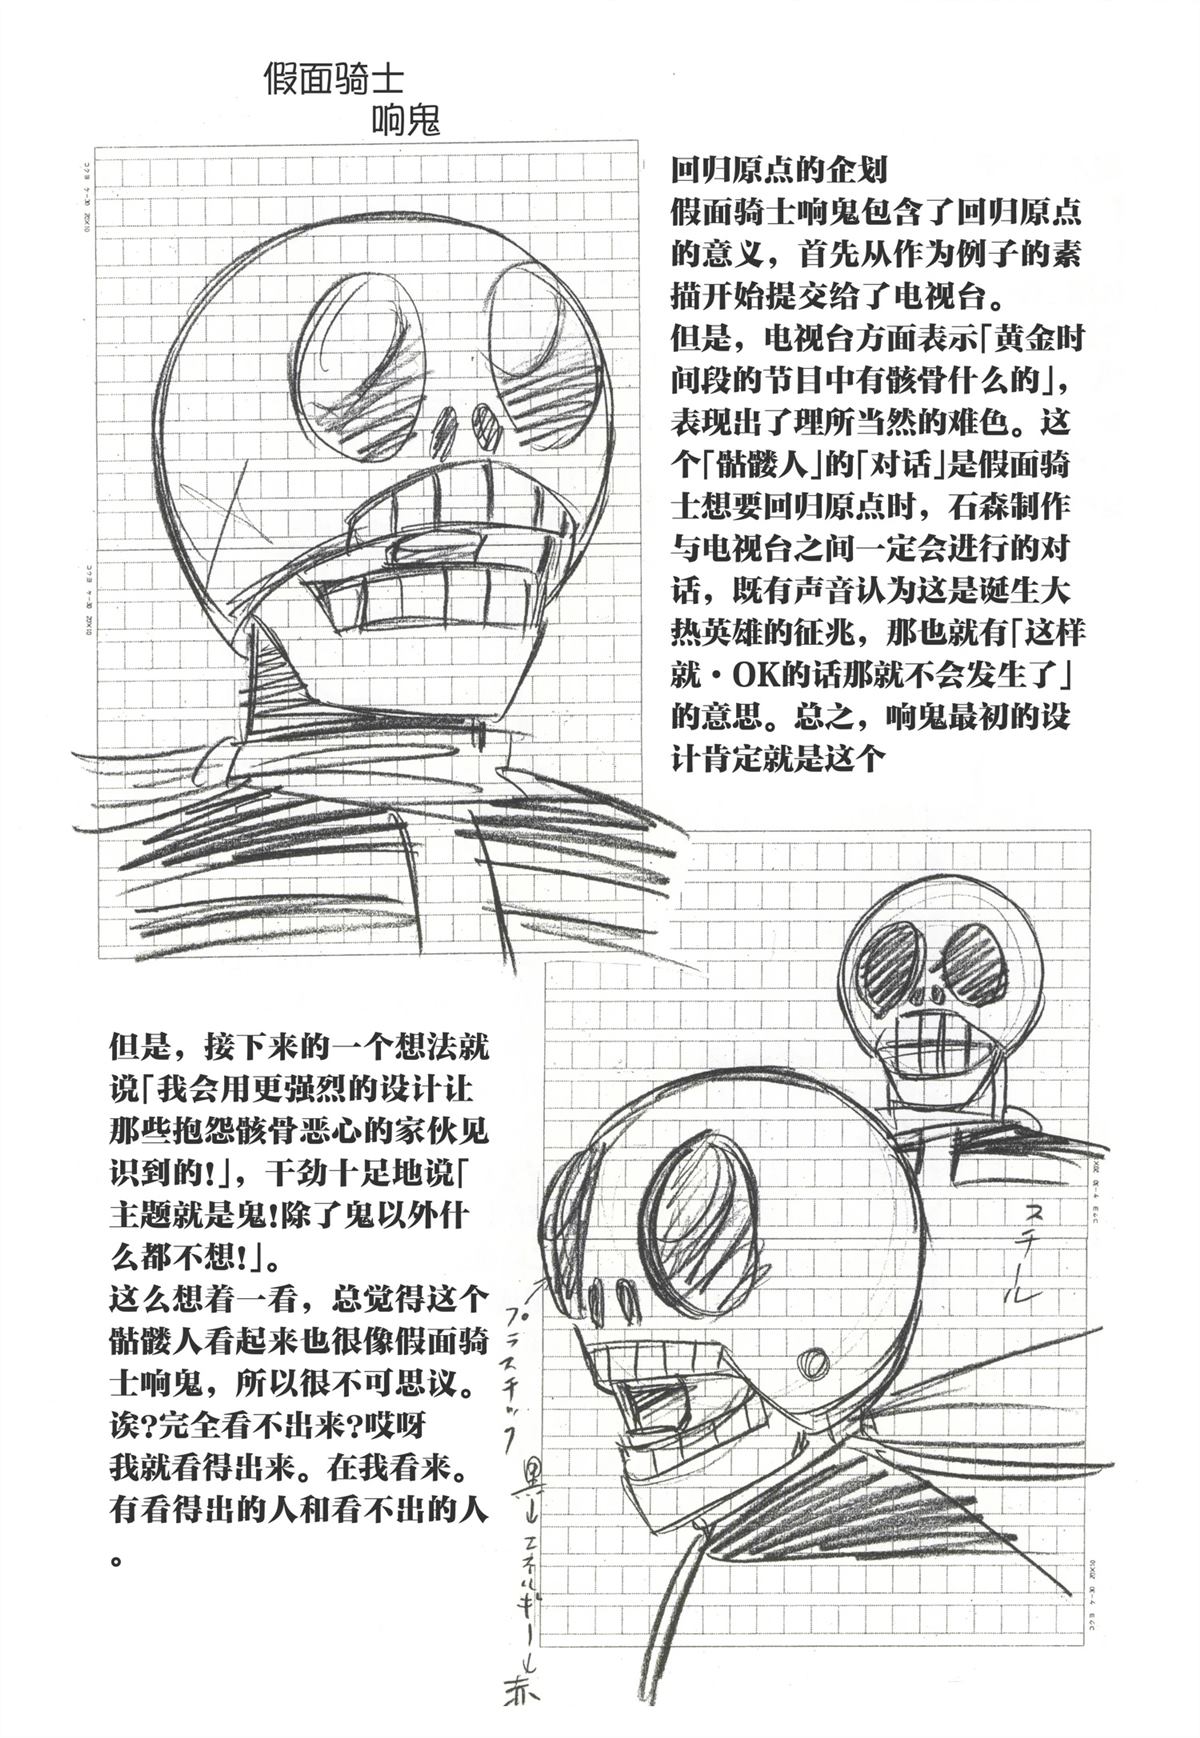 假面骑士
响鬼
回归原点的企划
假面骑士响鬼包含了回归原点
的意义，首先从作为例子的素
描开始提交给了电视台。
但是，电视台方面表示「黄金时
间段的节目中有骸骨什么的」，
表现出了理所当然的难色。这
个「骷髅人」的「对话」是假面骑
士想要回归原点时，石森制作
与电视台之间一定会进行的对
话，既有声音认为这是诞生大
热英雄的征兆，那也就有「这样
就·OK的话那就不会发生了」
的意思。总之，响鬼最初的设
计肯定就是这个
但是，接下来的一个想法就
说「我会用更强烈的设计让
那些抱怨骸骨恶心的家伙见
识到的!」，干劲十足地说「
主题就是鬼!除了鬼以外什
么都不想!」。
这么想着一看，总觉得这个
骷髅人看起来也很像假面骑
士响鬼，所以很不可思议。
诶?完全看不出来?哎呀
我就看得出来。在我看来。
有看得出的人和看不出的人
。
スチール
プラスチック
黒→エネルギー→赤
コクヨ ケ-30 20X10
コクヨ ケ-30 20X10
コクヨ ケ-30 20X10
コクヨ ケ-30 20X10